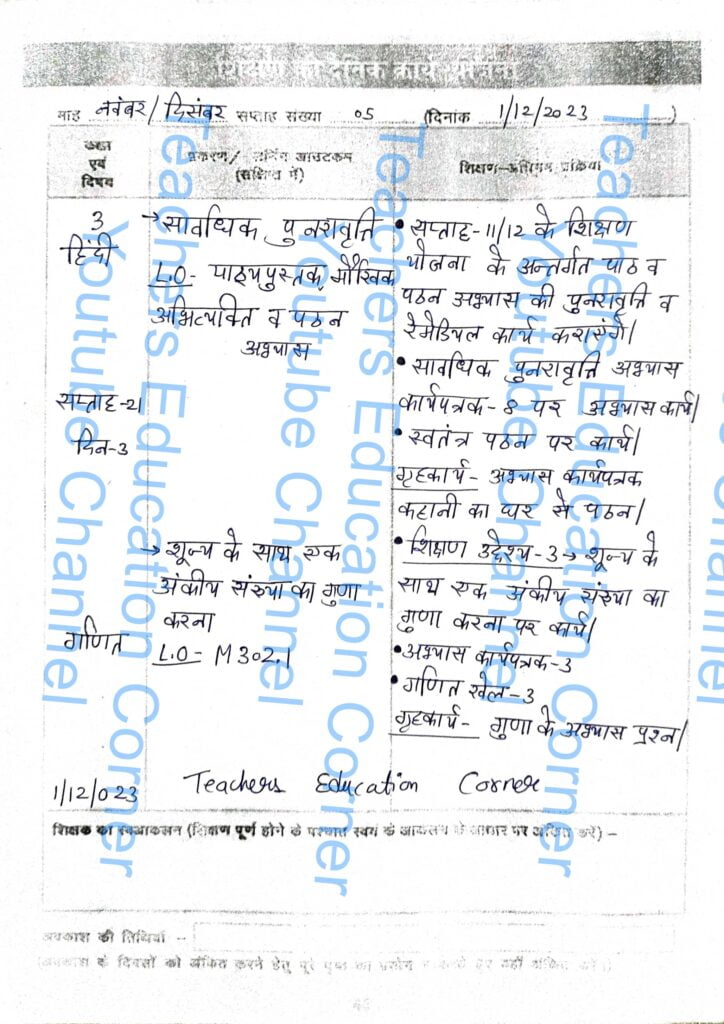 शिक्षण की दैनिक कार्य योजना
माह नवंबर/दिसंबर सप्ताह संख्या 05 (दिनांक 1/12/2023)
कक्षा एवं विषय
प्रकरण/ लर्निंग आउटकम (संक्षिप्त में)
शिक्षण-अधिगम प्रक्रिया
3
हिंदी
सप्ताह-21
दिन-3
→ सावधिक पुनरावृत्ति
L.O- पाठ्यपुस्तक, मौखिक
अभिव्यक्ति व पठन
अभ्यास
• सप्ताह-11/12 के शिक्षण
योजना के अन्तर्गत पाठ व
पठन अभ्यास की पुनरावृत्ति व
रेमेडियल कार्य करायेंगे।
• सावधिक पुनरावृत्ति अभ्यास
कार्यपत्रक-8 पर अभ्यास कार्य।
• स्वतंत्र पठन पर कार्य।
गृहकार्य- अभ्यास कार्यपत्रक
कहानी का घर से पठन।
गणित
→ शून्य के साथ एक
अंकीय संख्या का गुणा
करना
L.O- M302.1
• शिक्षण उद्देश्य-3→ शून्य के
साथ एक अंकीय संख्या का
गुणा करना पर कार्य।
• अभ्यास कार्यपत्रक-3
• गणित खेल-3
गृहकार्य- गुणा के अभ्यास प्रश्न।
1/12/023 Teachers Education Corner
शिक्षक का स्वआकलन (शिक्षण पूर्ण होने के पश्चात स्वयं के आकलन के आधार पर अंकित करें) –
अवकाश की तिथियां –
(अवकाश के दिवसों को अंकित करने हेतु पूरे पृष्ठ का प्रयोग न करते हुए यहाँ अंकित करें।)
46
Teachers Education Corner
Youtube Channel
Teachers Education Corner
Youtube Channel
Teachers Education Corner
Youtube Channel